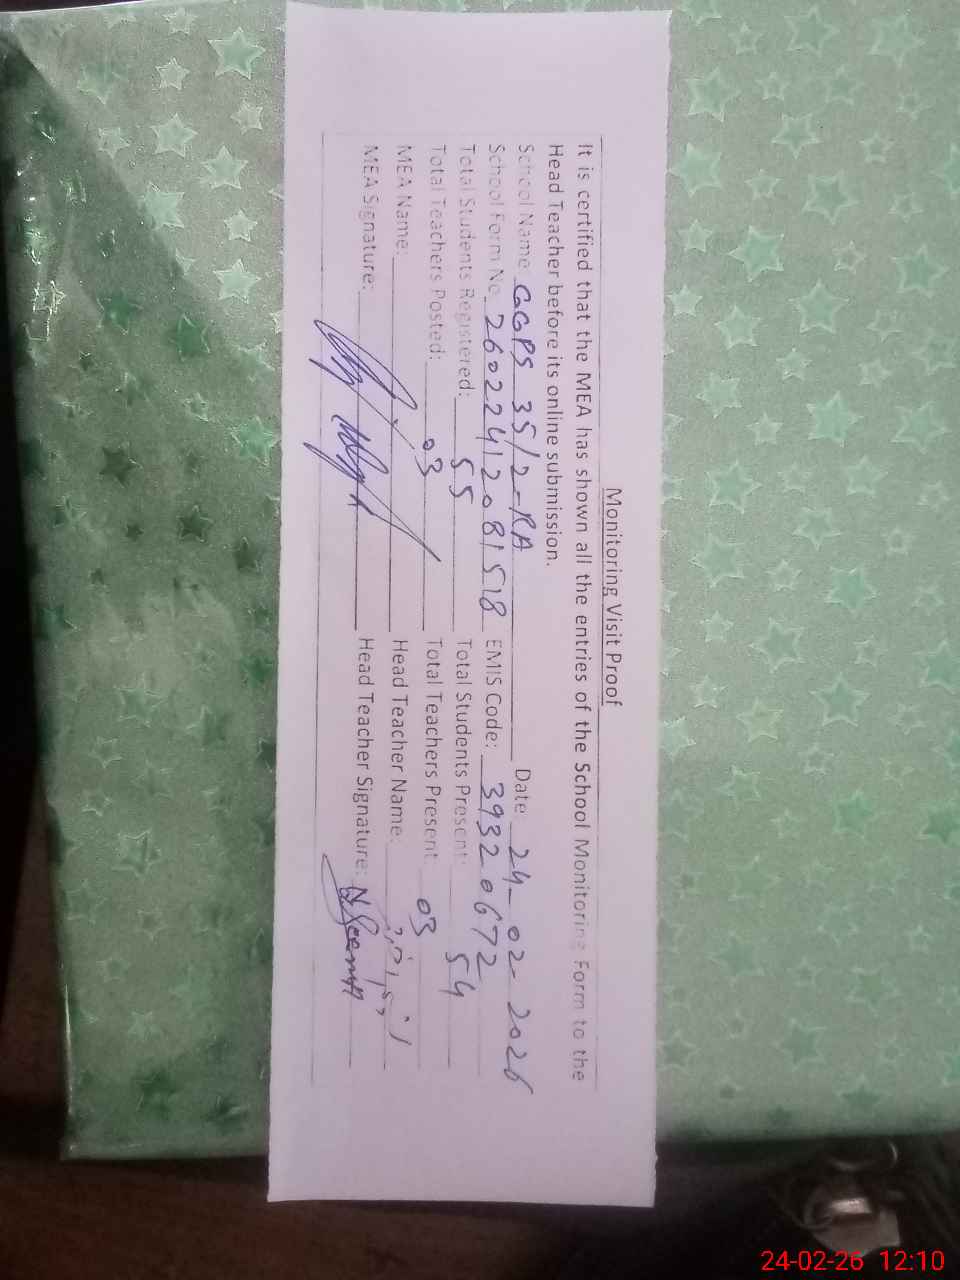 Monitoring Visit Proof
It is certified that the MEA has shown all the entries of the School Monitoring Form to the
Head Teacher before its online submission.
School Name: GGPS 35/2-RA Date: 24-02-2026
School Form No. 26022412081518 EMIS Code: 39320672
Total Students Registered: 55 Total Students Present: 54
Total Teachers Posted: 03 Total Teachers Present: 03
MEA Name: Head Teacher Name:
MEA Signature: Head Teacher Signature:
24-02-26 12:10